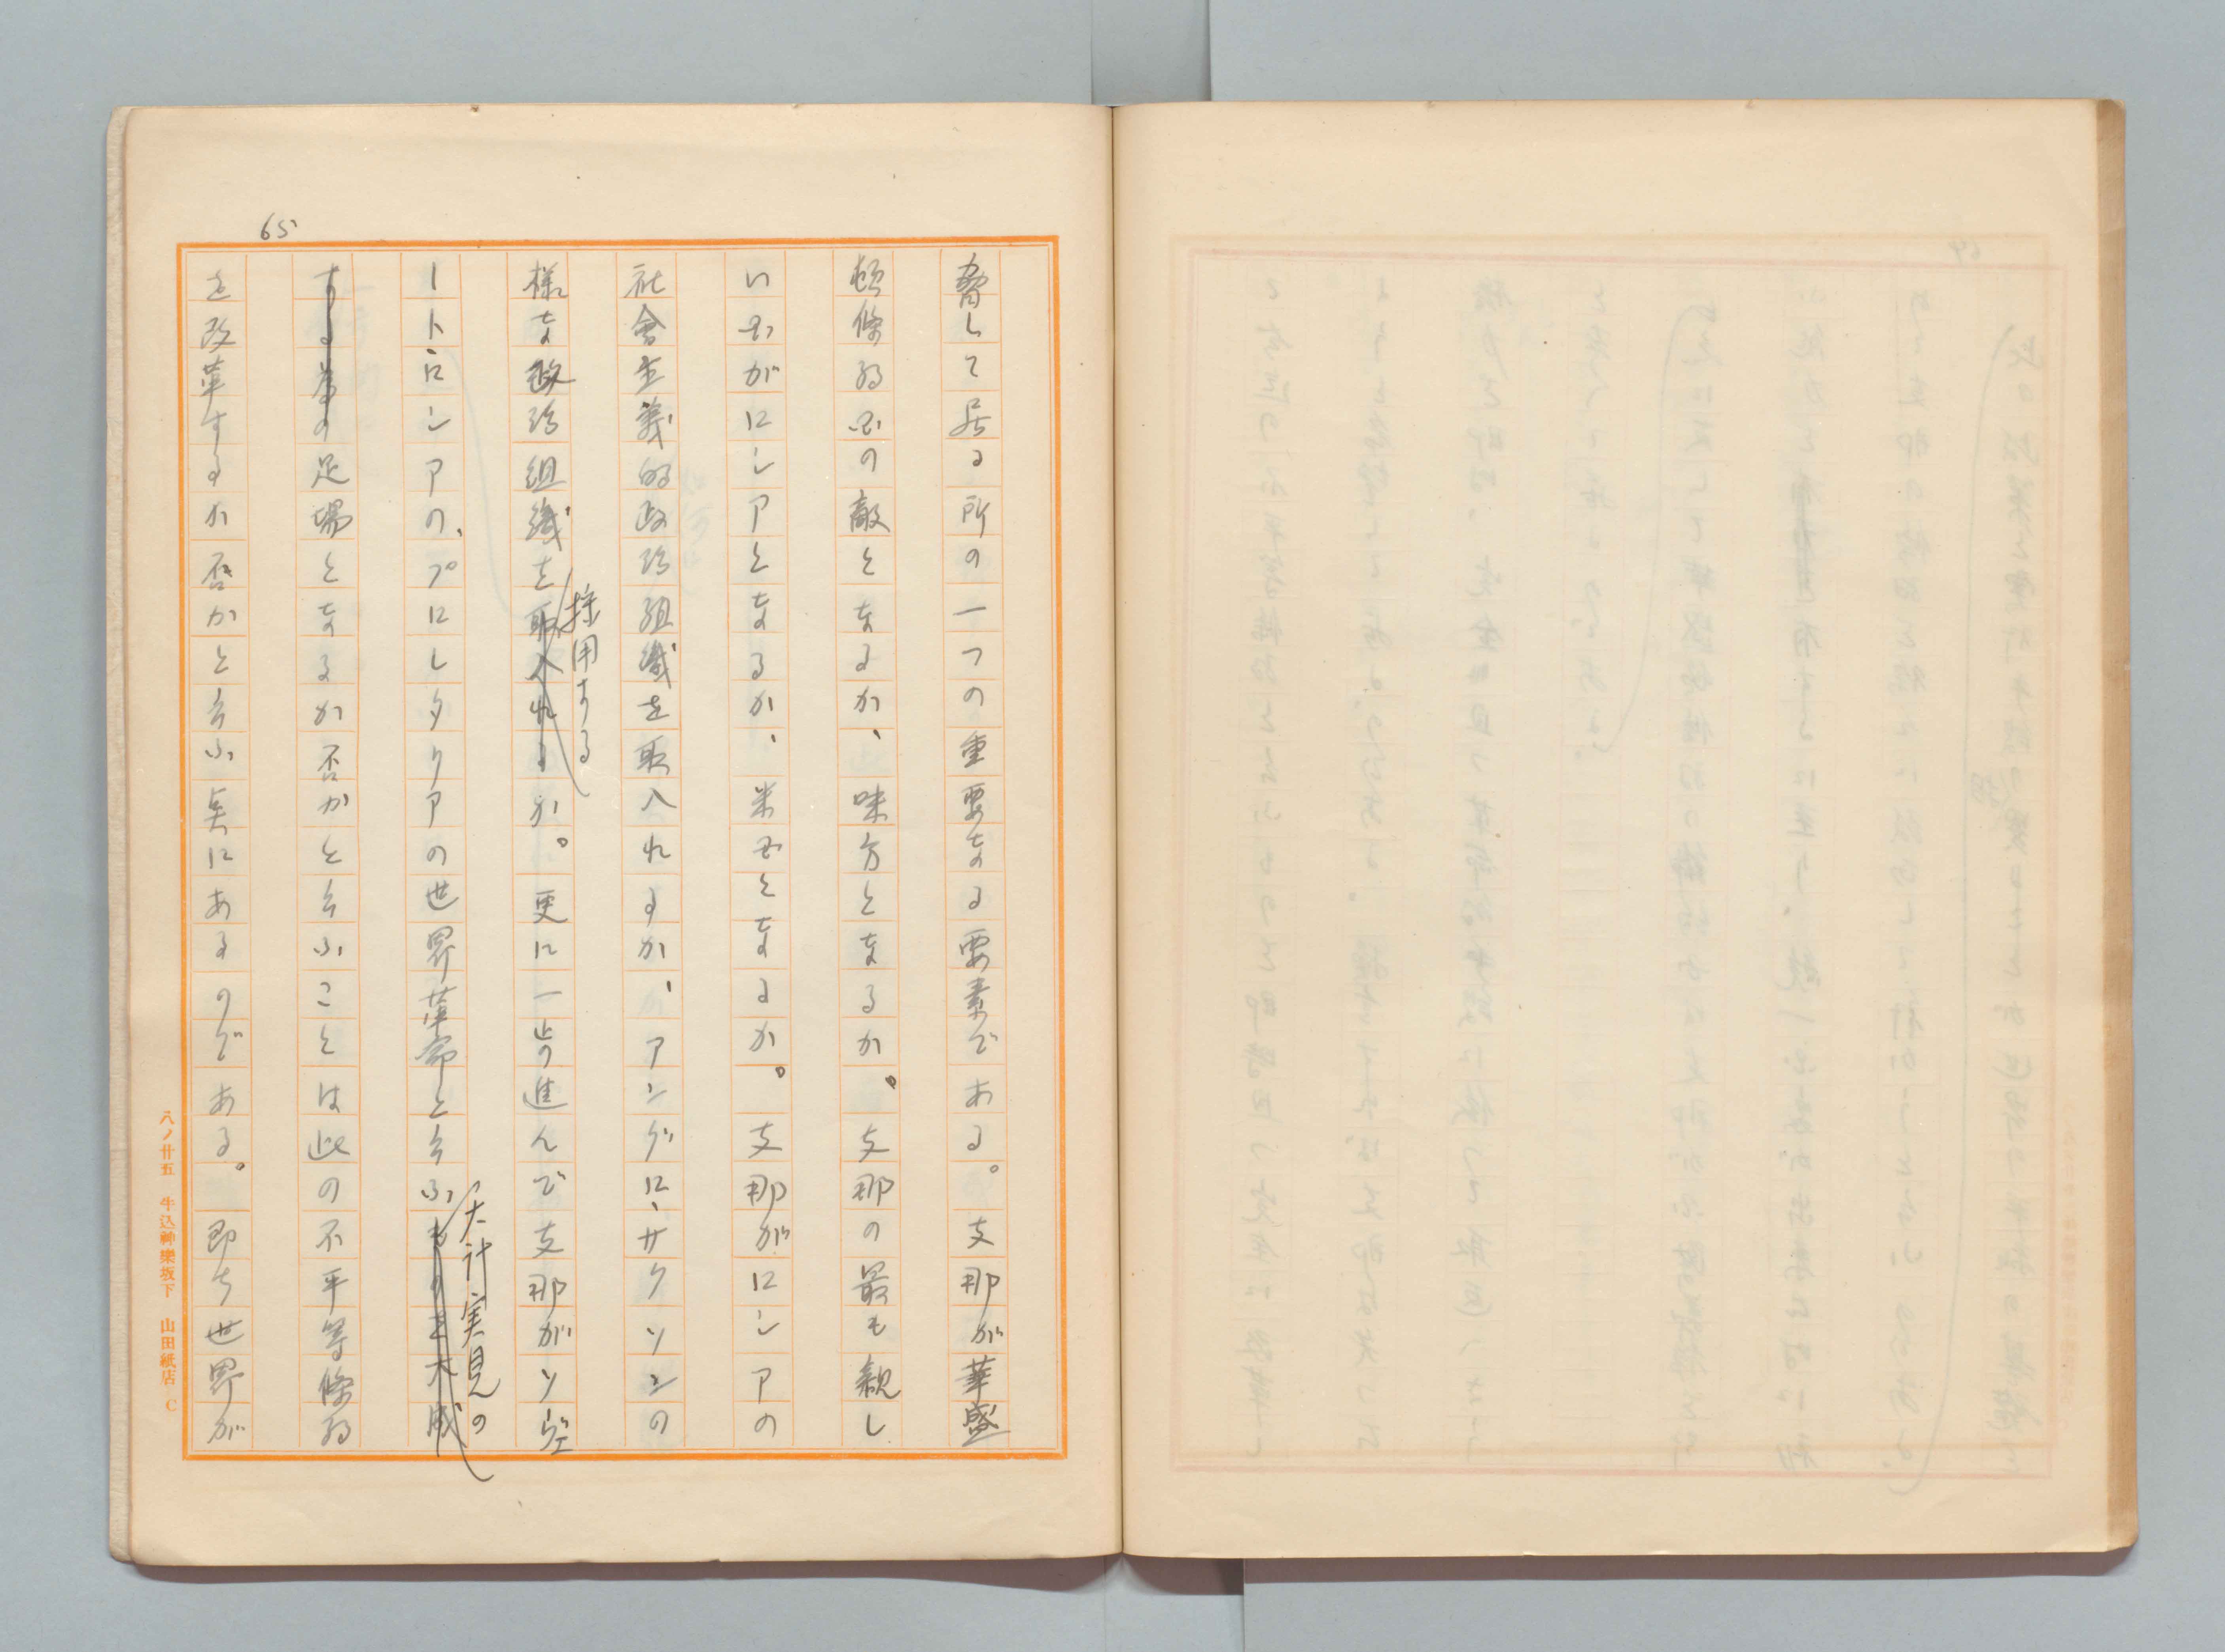 65
脅して居る所の一つの重要なる要素である。支那が華盛
頓條約国の敵となるか、味方となるか。支那の最も親し
い国がロシアとなるか、米国となるか。支那がロシアの
社會主義的政治組織を取入れるか、アングロ、サクソンの
採用する
様な政治組織を取入れるか。更に一歩進んで支那がソヴエ
大計実見の
ート、ロシアの、プロレタリアの世界革命と云ふものを大成
する為の足場となるか否かと云ふことは此の不平等條約
を改革するか否かと云ふ点にあるのである。即ち世界が
八ノ廿五 牛込神樂坂下 山田紙店 C